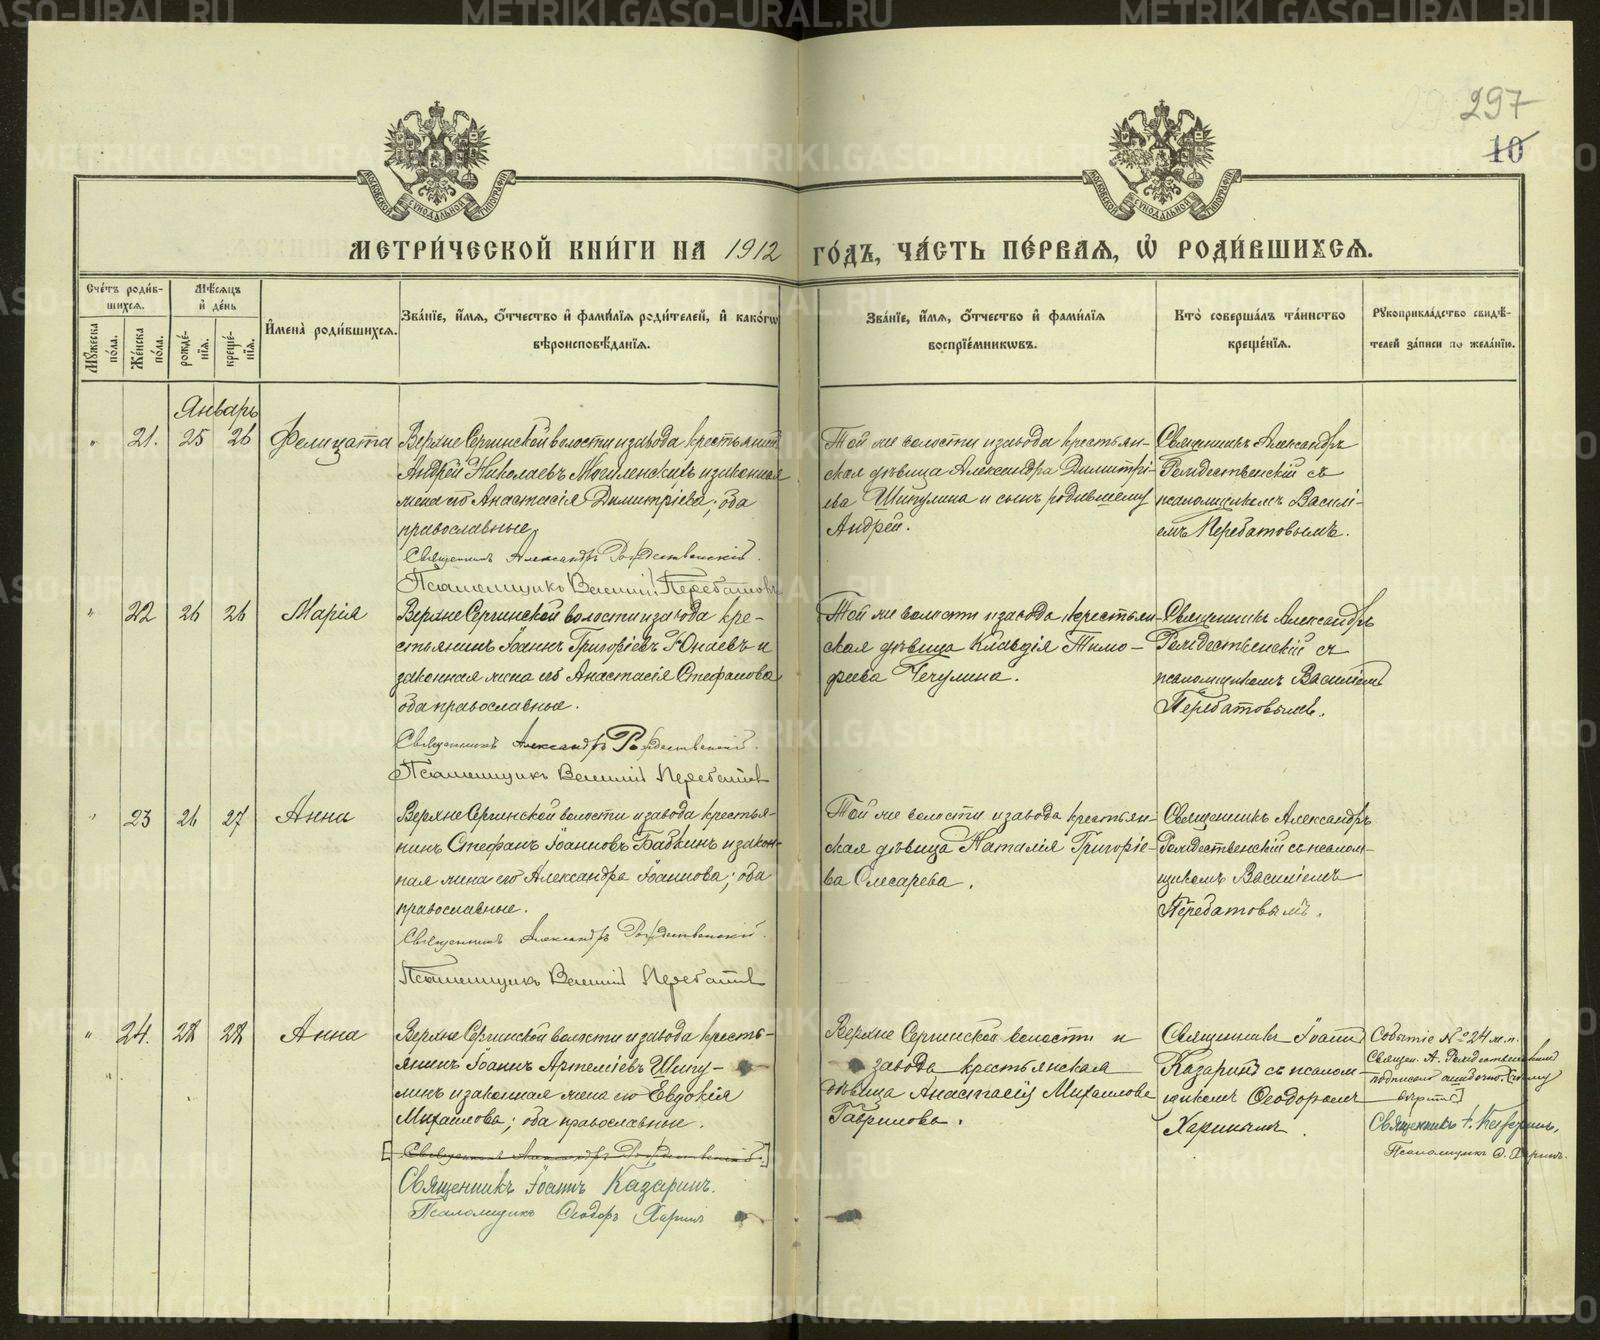 METRIKI.GASO-URAL.RU
297
10
МОСКОВСКОЙ СѴНОДАЛЬНОЙ ТИПОГРАФІИ
МОСКОВСКОЙ СѴНОДАЛЬНОЙ ТИПОГРАФІИ
МЕТРИ́ЧЕСКОЙ КНИ́ГИ НА 1912 ГО́ДЪ, ЧА́СТЬ ПЕ́РВАЯ, Ѡ҆ РОДИ́ВШИХСЯ.
Сче́тъ роди́в-
шихся.
Мꙋ́жеска по́ла.
Же́нска по́ла.
Мѣ́сяцъ
и҆ де́нь
рожде́-
нїя.
креще́-
нїя.
И҆мена̀ роди́вшихся.
Зва́нїе, и҆́мя, о҆́тчество и҆ фами́лїя роди́телей, и҆ како́гѡ
вѣроисповѣ́данїя.
Зва́нїе, и҆́мя, о҆́тчество и҆ фами́лїя
воспрїе́мникѡвъ.
Кто̀ соверша́лъ та́инство
креще́нїя.
Рꙋкоприкла́дство свидѣ́-
телей за́писи по жела́нїю.
Январь
" 21. 25 26 Фелицата
Верхне Сергинской волости и завода крестьянинъ
Андрей Николаевъ Могиленскихъ и законная
жена его Анастасія Димитріева; оба
православные,
Священникъ Александръ Рождественскій.
Псаломщикъ Василій Перебатовъ
Той же волости и завода крестьян-
ская дѣвица Александра Димитрі-
ева Шипулина и сынъ родившему
Андрей.
Священникъ Александръ
Рождественскій съ
псаломщикомъ Василі-
емъ Перебатовымъ.
" 22 26 26 Марія
Верхне Сергинской волости и завода кре-
стьянинъ Іоаннъ Григоріевъ Юнаевъ и
законная жена его Анастасія Стефанова
оба православные.
Священникъ Александръ Рождественскій.
Псаломщикъ Василій Перебатовъ
Той же волости и завода крестьян-
ская дѣвица Клавдія Тимо-
феева Чечулина.
Священникъ Александръ
Рождественскій съ
псаломщикомъ Василіемъ
Перебатовымъ.
" 23 26 27 Анна
Верхне Сергинской волости и завода крестья-
нинъ Стефанъ Іоанновъ Бабкинъ и закон-
ная жена его Александра Іоаннова; оба
православные.
Священникъ Александръ Рождественскій.
Псаломщикъ Василій Перебатовъ
Той же волости и завода крестьян-
ская дѣвица Наталія Григоріе-
ва Слесарева.
Священникъ Александръ
Рождественскій съ псалом-
щикомъ Василіемъ
Перебатовымъ.
" 24. 28 28 Анна
Верхне Сергинской волости и завода кресть-
янинъ Іоаннъ Артеміевъ Шипу-
линъ и законная жена его Евдокія
Михаилова; оба православные.
[Священникъ Александръ Рождественскій]
Священникъ Іоаннъ Казаринъ.
Псаломщикъ Ѳеодоръ Харинъ
Верхне Сергинской волости и
завода крестьянская
дѣвица Анастасія Михаилова
Гаврилова.
Священникъ Іоаннъ
Казаринъ съ псалом-
щикомъ Ѳеодоромъ
Харинымъ.
Событіе № 24 м.п.
Священ. А. Рождественскимъ
подписано ошибочно.
Священникъ І. Казаринъ,
Псаломщикъ Ѳ. Харинъ.